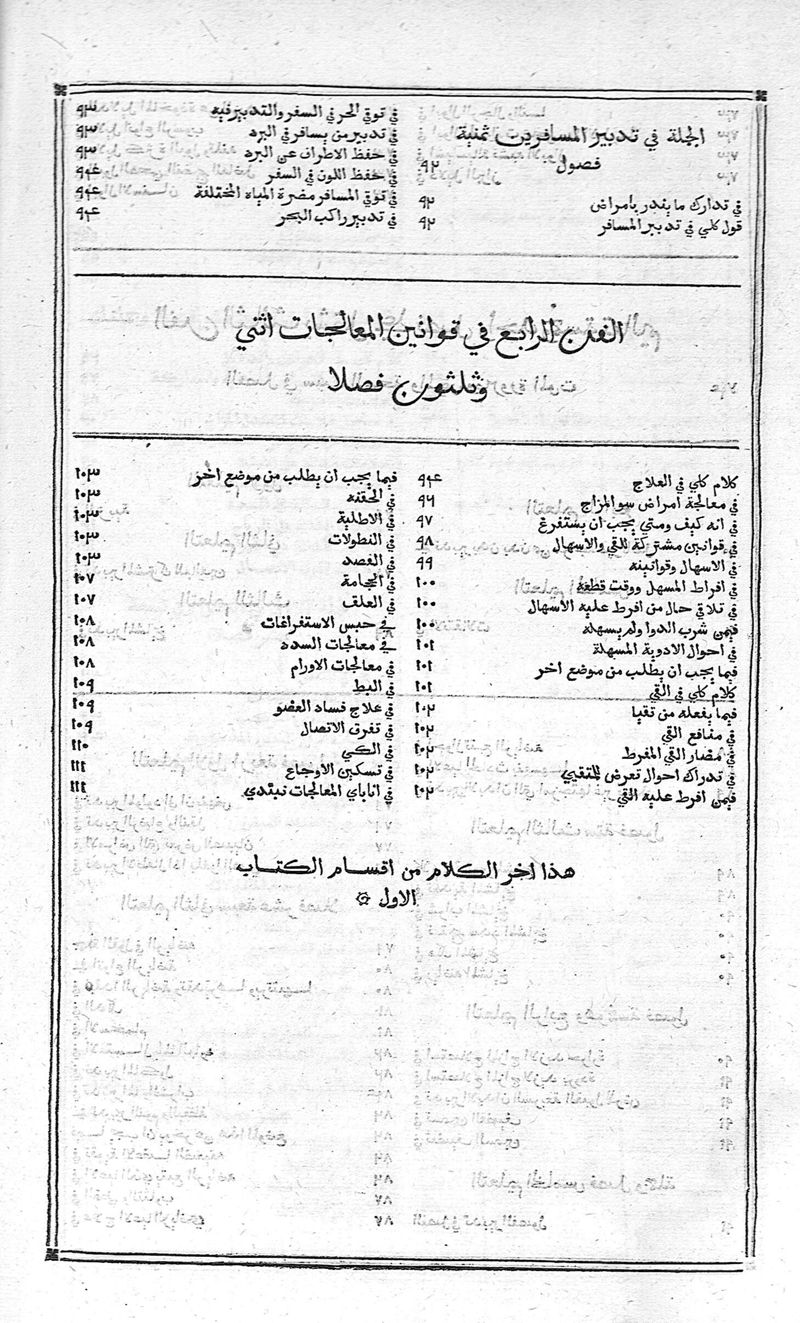 الجملة في تدبير المسافرين ثمنية
فصول ٩٢
في تدارك ما ينذر بامراض ٩٢
قول كلي في تدبير المسافر ٩٢
في توقي الحر في السفر والتدبير فيه ٩٣
في تدبير من يسافر في البرد ٩٣
في حفظ الاطراف عن البرد ٩٣
في حفظ اللون في السفر ٩٤
في توقي المسافر مضرة المياه المختلفة ٩٤
في تدبير راكب البحر ٩٤
الفن الرابع في قوانين المعالجات اثني
وثلثون فصلا
كلام كلي في العلاج ٩٤
في معالجة امراض سو المزاج ٩٦
في انه كيف ومتي يجب ان يستفرغ ٩٧
في قوانين مشتركة للقي والاسهال ٩٨
في الاسهال وقوانينه ٩٩
في افراط المسهل ووقت قطعه ١٠٠
في تلافي حال من افرط عليه الاسهال ١٠٠
فيمن شرب الدوا ولم يسهله ١٠٠
في احوال الادوية المسهلة ١٠١
فيما يجب ان يطلب من موضع اخر ١٠١
كلام كلي في القي ١٠١
فيما يفعله من تقيا ١٠٢
في منافع القي ١٠٢
في مضار القي المفرط ١٠٢
في تدراك احوال تعرض للمتقيي ١٠٢
فيمن افرط عليه القي ١٠٢
فيما يجب ان يطلب من موضع اخر ١٠٣
في الحقنه ١٠٣
في الاطلية ١٠٣
في النطولات ١٠٣
في الفصد ١٠٣
في الحجامة ١٠٧
في العلق ١٠٧
في حبس الاستفراغات ١٠٨
في معالجات السدد ١٠٨
في معالجات الاورام ١٠٨
في البط ١٠٩
في علاج فساد العضو ١٠٩
في تفرق الاتصال ١٠٩
في الكي ١١٠
في تسكين الاوجاع ١١١
في انا باي المعالجات نبتدي ١١١
هذا اخر الكلام من اقسام الكتاب
الاول